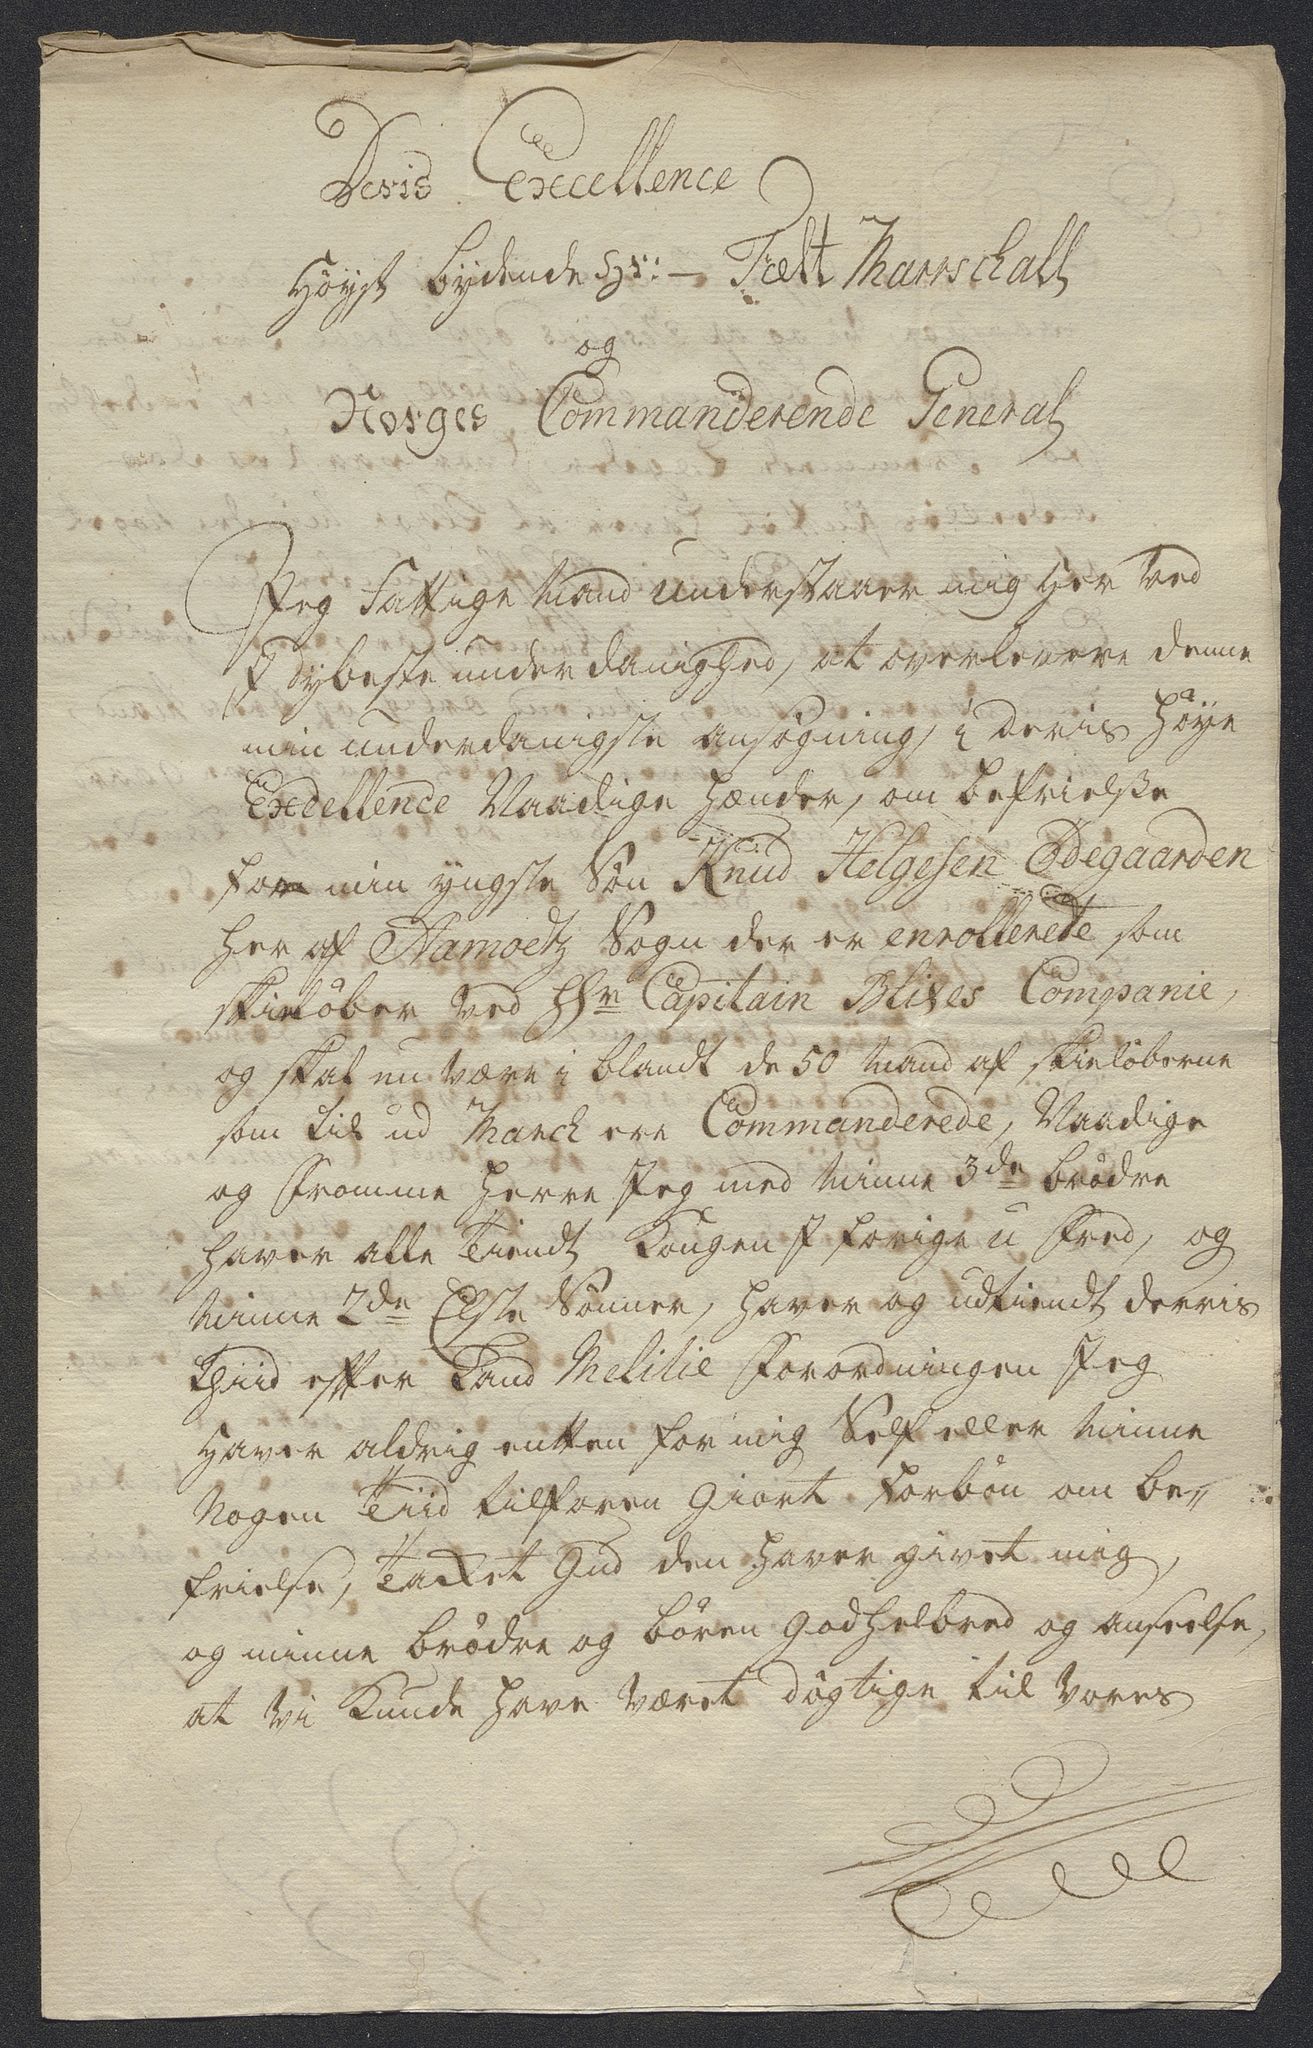 Deris Excellence
Høyst bydende Hr: – Fælt Marschall
og
Norges Commanderende General
Jeg Fattige Mand understaaer mig Her Ved
I dybeste underdanighed, at overlevere denne
min underdanigste ansøgning, i Deris Høye
Excellence Naadige Hænder, om befrielsse
for min yngste Søn Knud Helgesen Ødegaarden
her af Aamodtz Sogn der er enrollerede som
skieløber Ved Hr Capitain Blixes Companie,
og skal nu være i blandt de 50 Mand af skieløberne
som til ud March ere Commanderede, Naadige
og Fromme Herre Jeg med Minne 3de brødre
haver alle tiendt Kongen I forige u Fred, og
Minne 2de Elste Sønner, haver og udtiendt derris
Thiid efter Land Melitie Forordningen Jeg
Haver aldrig entten for mig Self eller Minne
Nogen Tiid tilforen Giort forbøn om be„
frielse, Tacket Gud den haver givet mig,
og minne brødre og børen God helbred og anseelse,
at Vi Kunde have Været døgtige til Vores